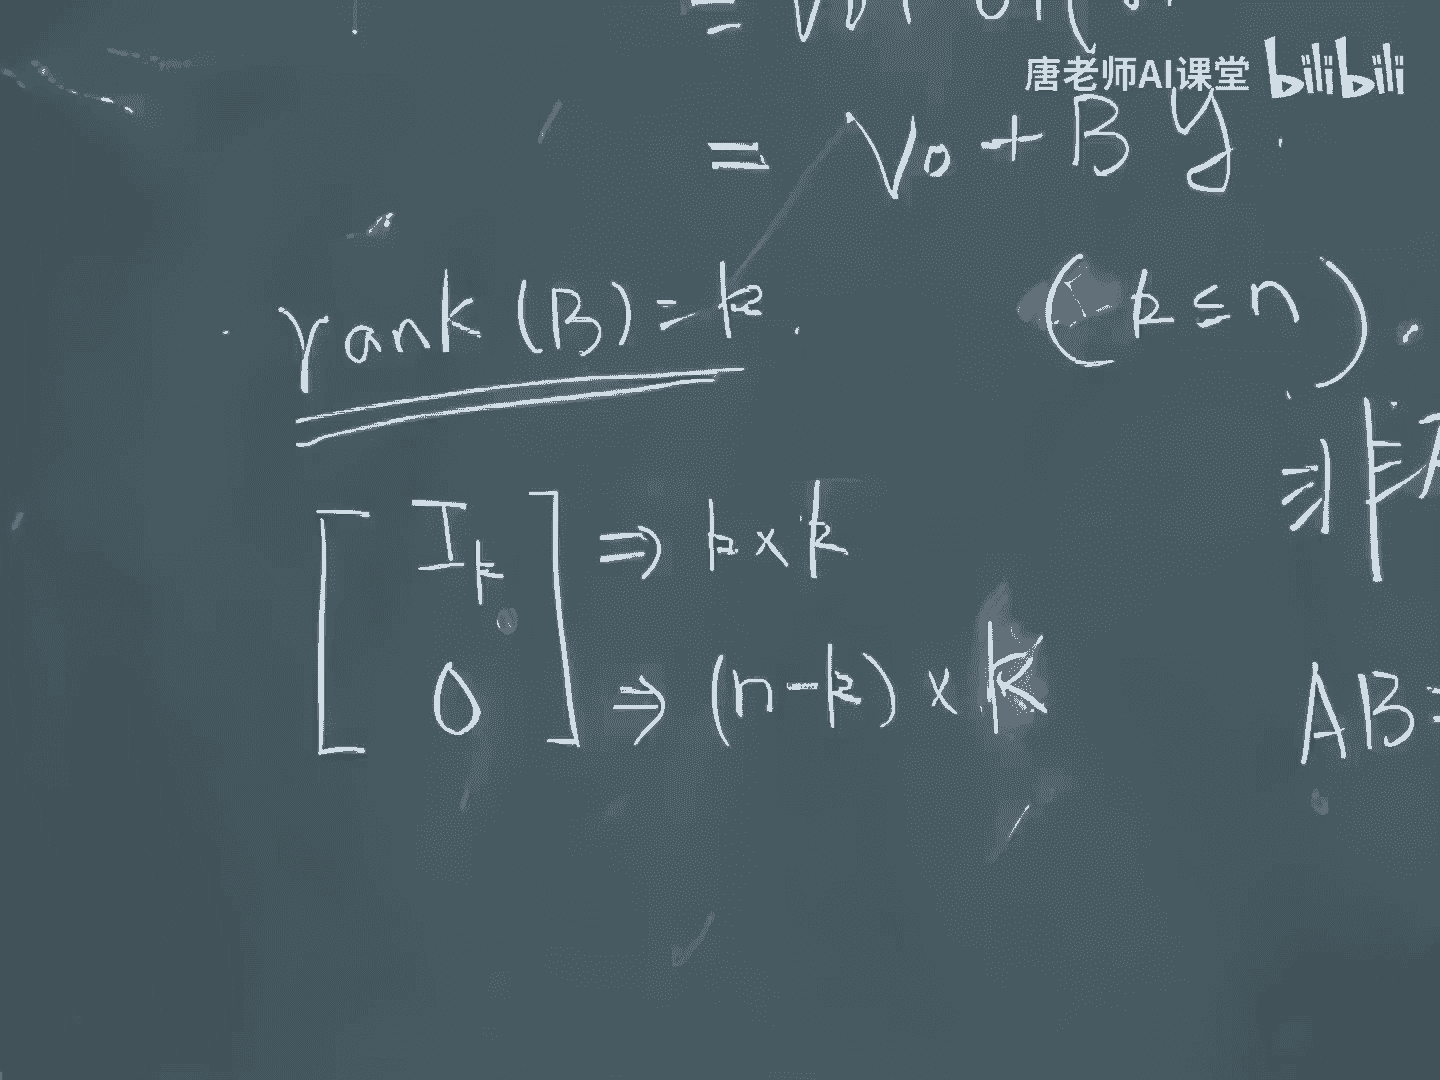 唐老师AI课堂 bilibili
= V0 + B y .
rank (B) = k . (k ≤ n) .
非
[ I_k ] ⇒ k × k
[ 0 ] ⇒ (n-k) × k
AB=